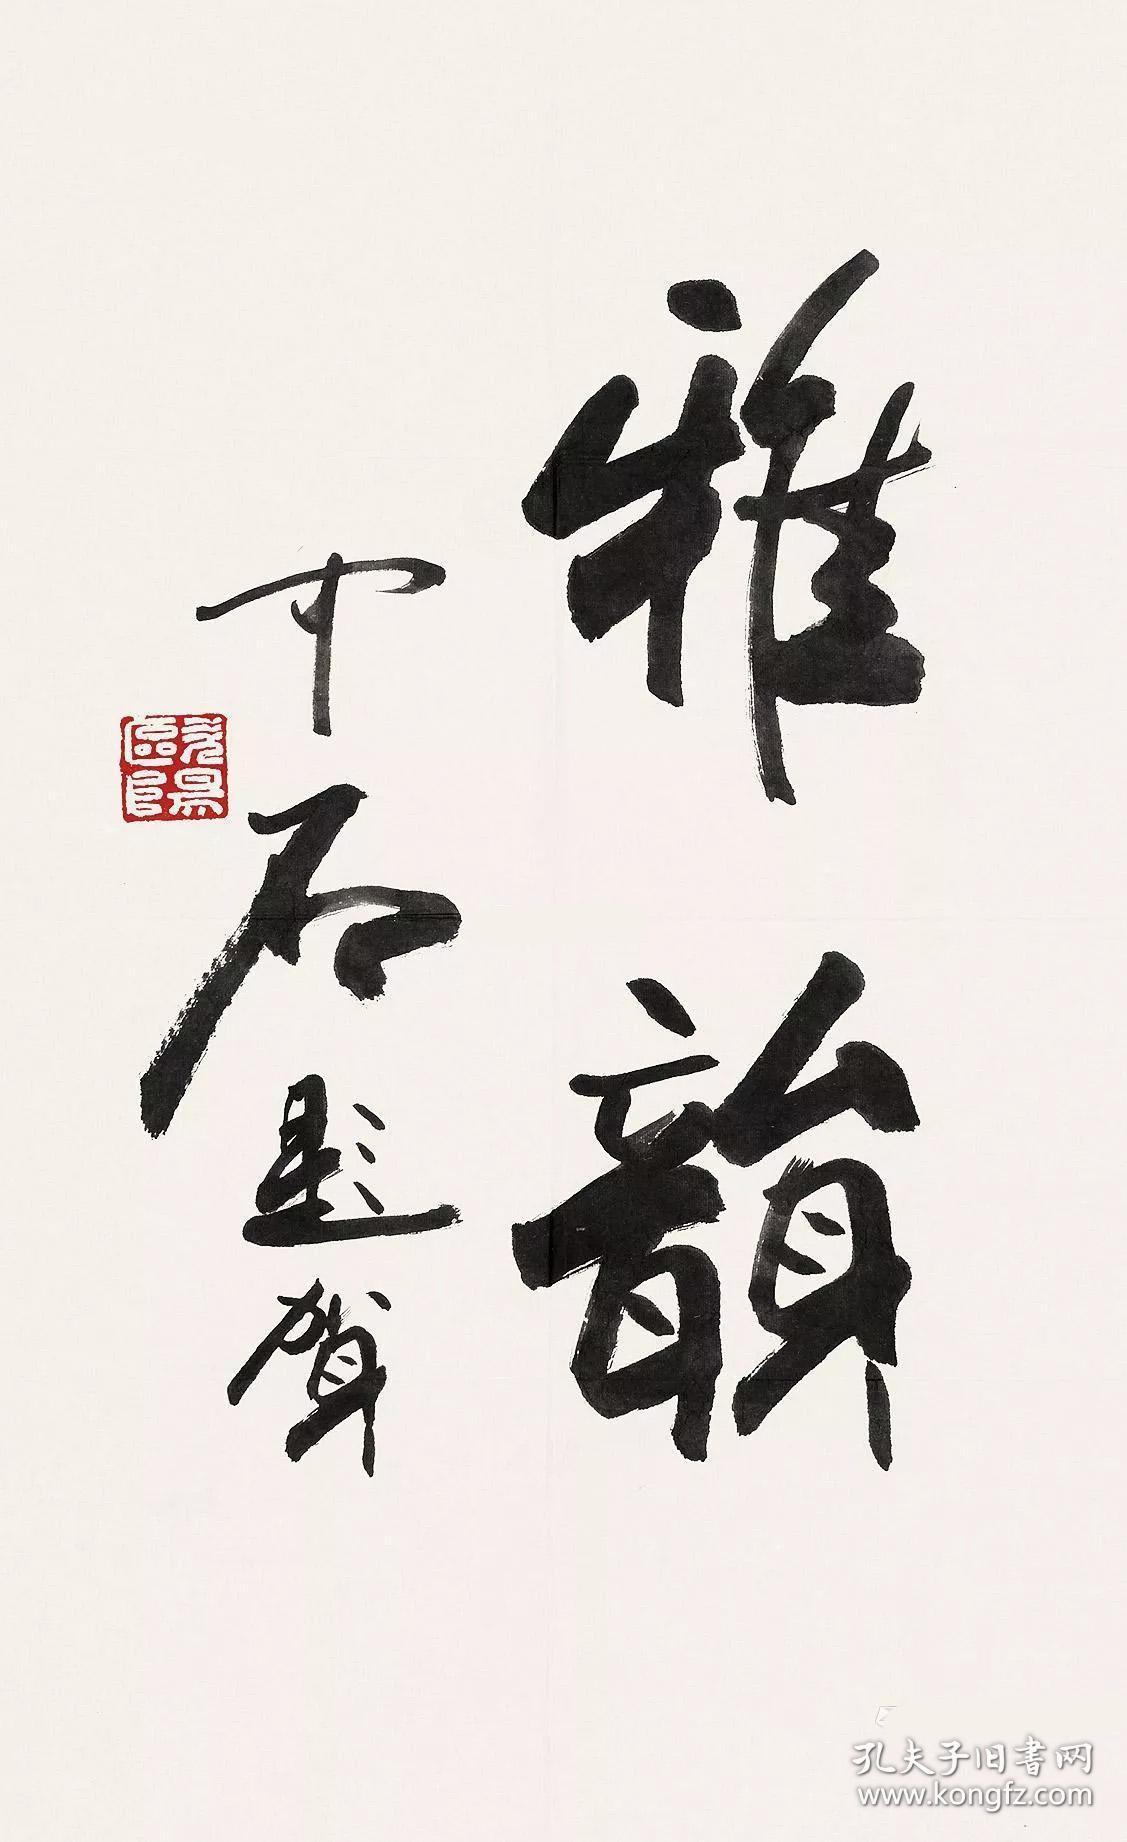 雅韻
中石題賀
歐陽
孔夫子旧书网
www.kongfz.com